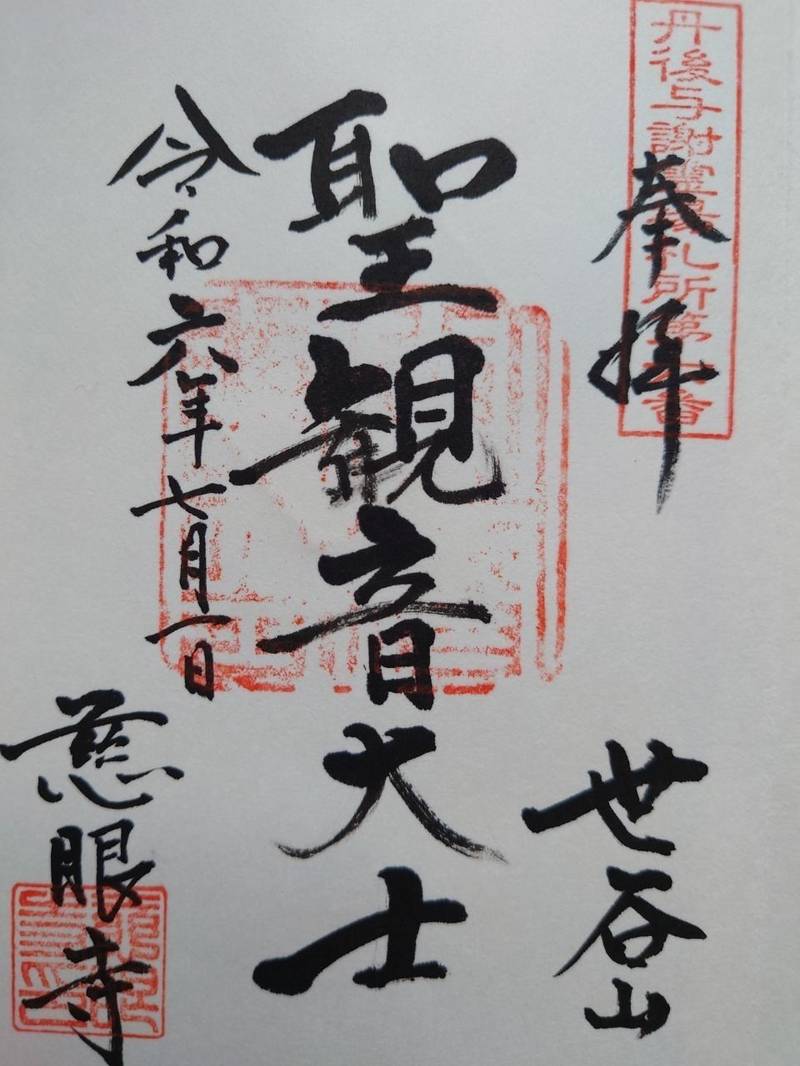 丹後与謝霊場札所第
奉拝
世谷山
聖観音大士
令和六年七月一日
慈眼寺